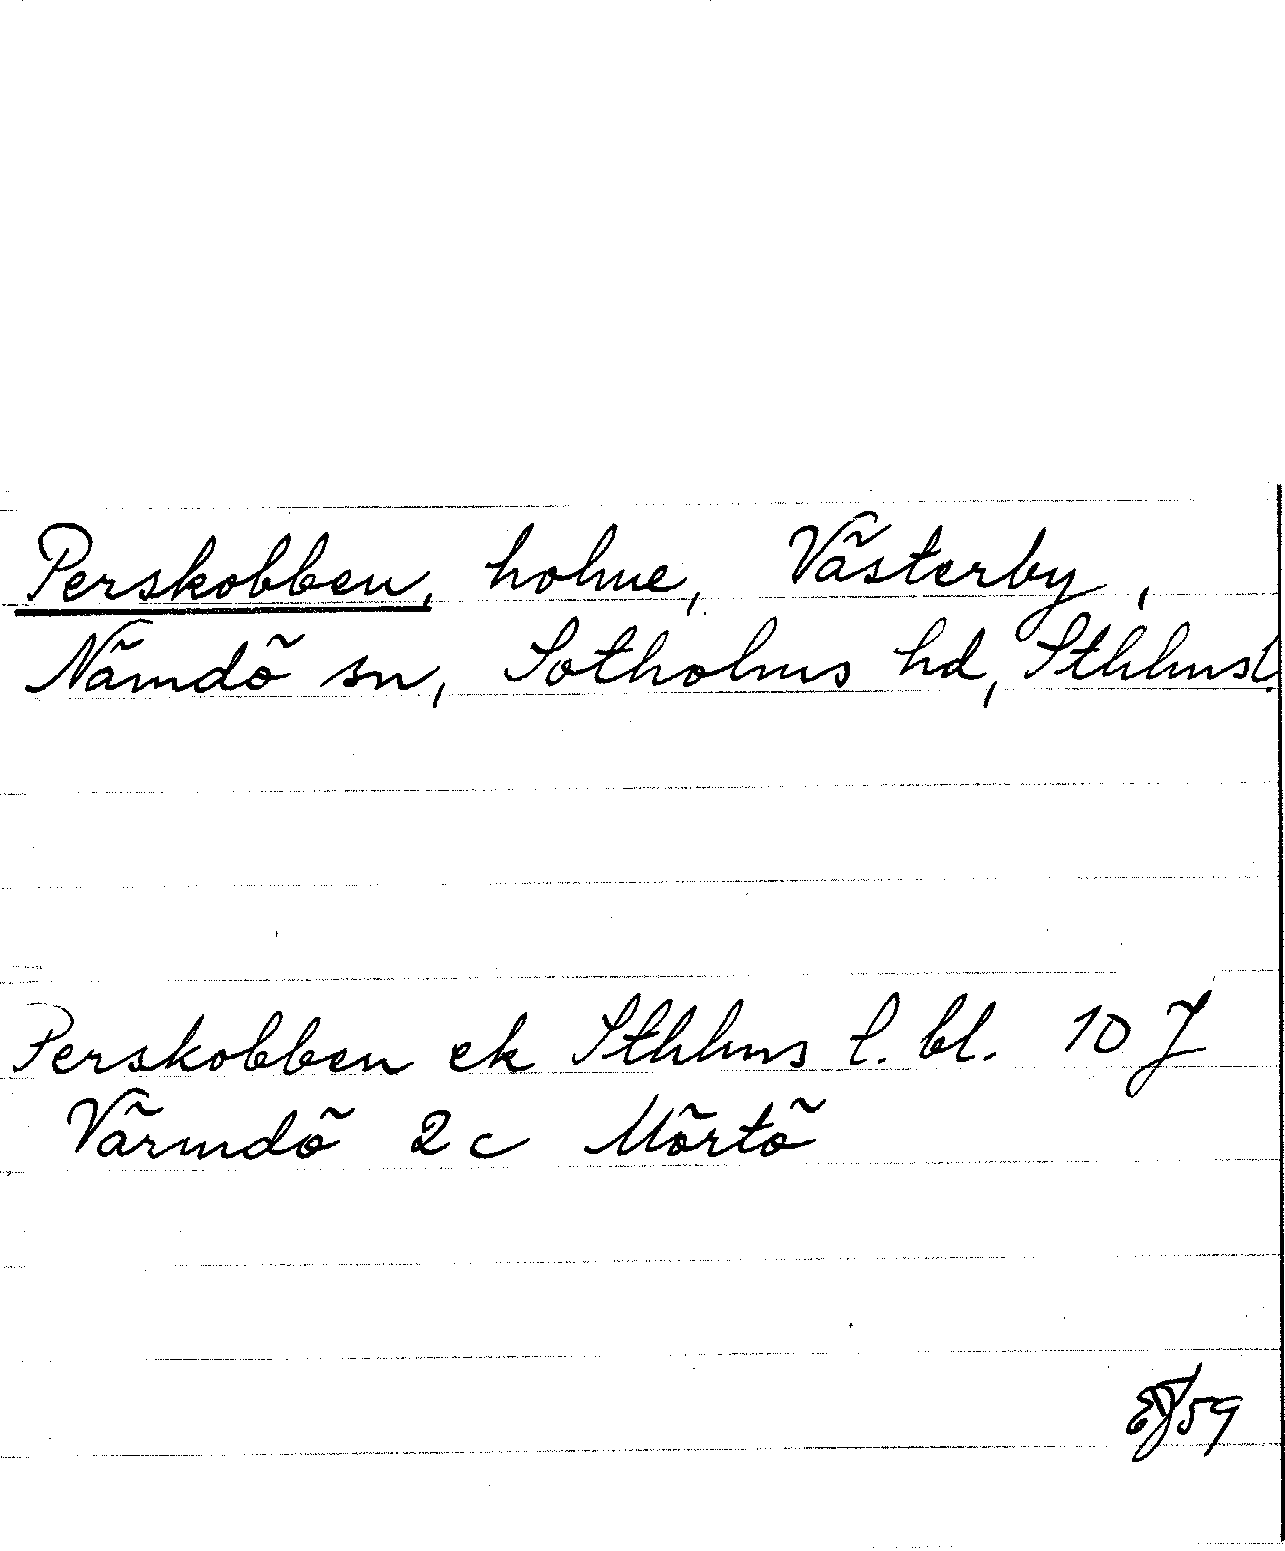 Perskobben, holme, Västerby,
Nämdö sn, Sotholms hd, Sthlms l.
Perskobben ek Sthlms l. bl. 10 J
Värmdö 2 c Mörtö
59